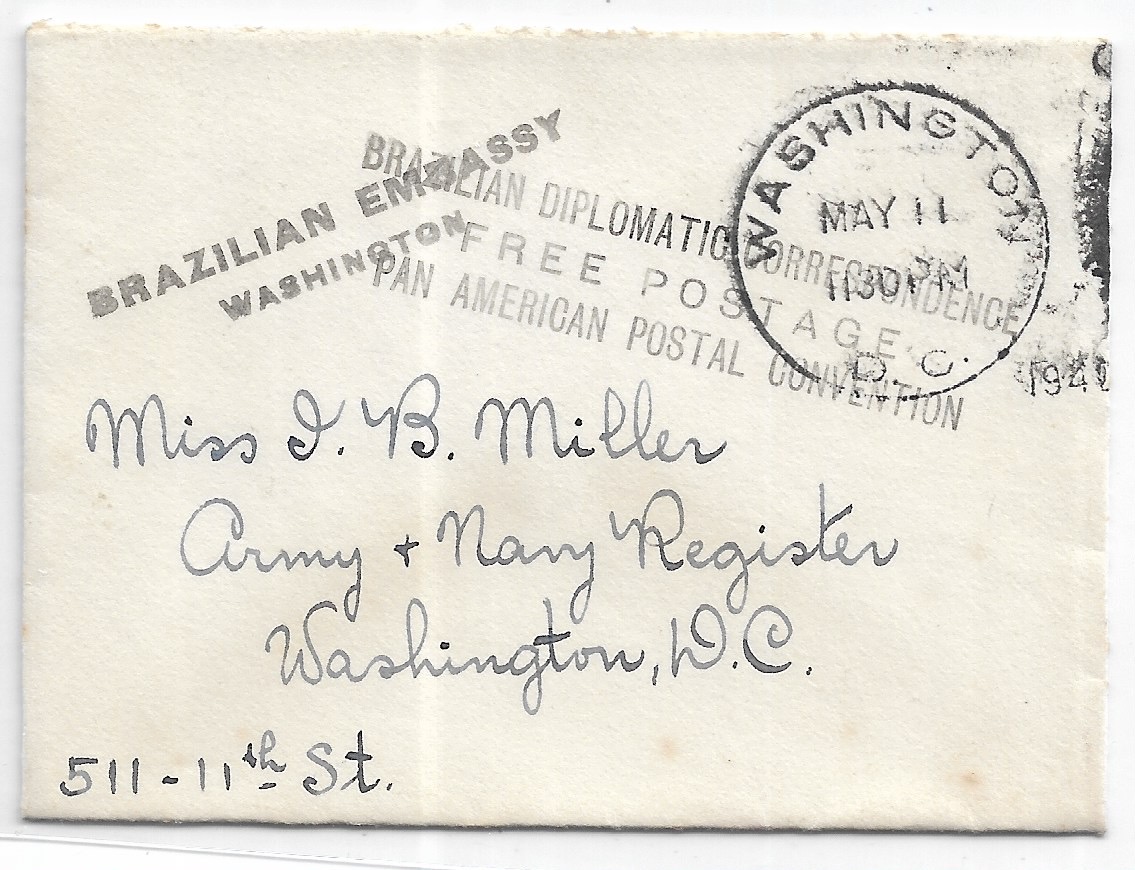 BRAZILIAN EMBASSY
WASHINGTON
BRAZILIAN DIPLOMATIC CORRESPONDENCE
FREE POSTAGE
PAN AMERICAN POSTAL CONVENTION
WASHINGTON
MAY 11
1130 PM
D. C.
Miss I. B. Miller
Army + Navy Register
Washington, D.C.
511 - 11th St.